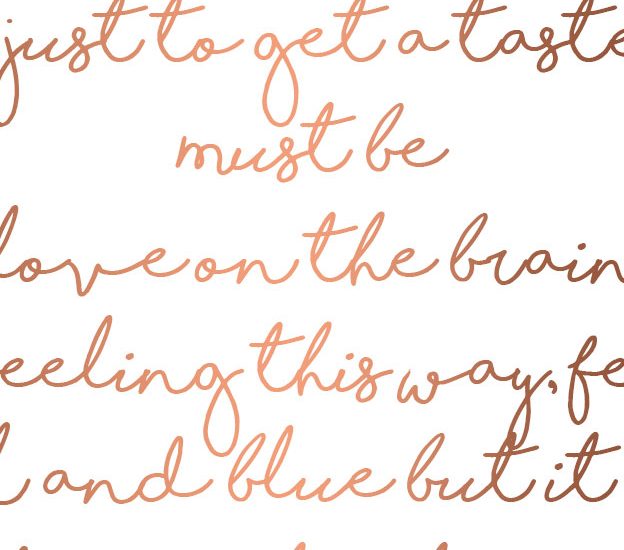 just to get a taste
must be
love on the brain
eeling this way, fe
and blue but it